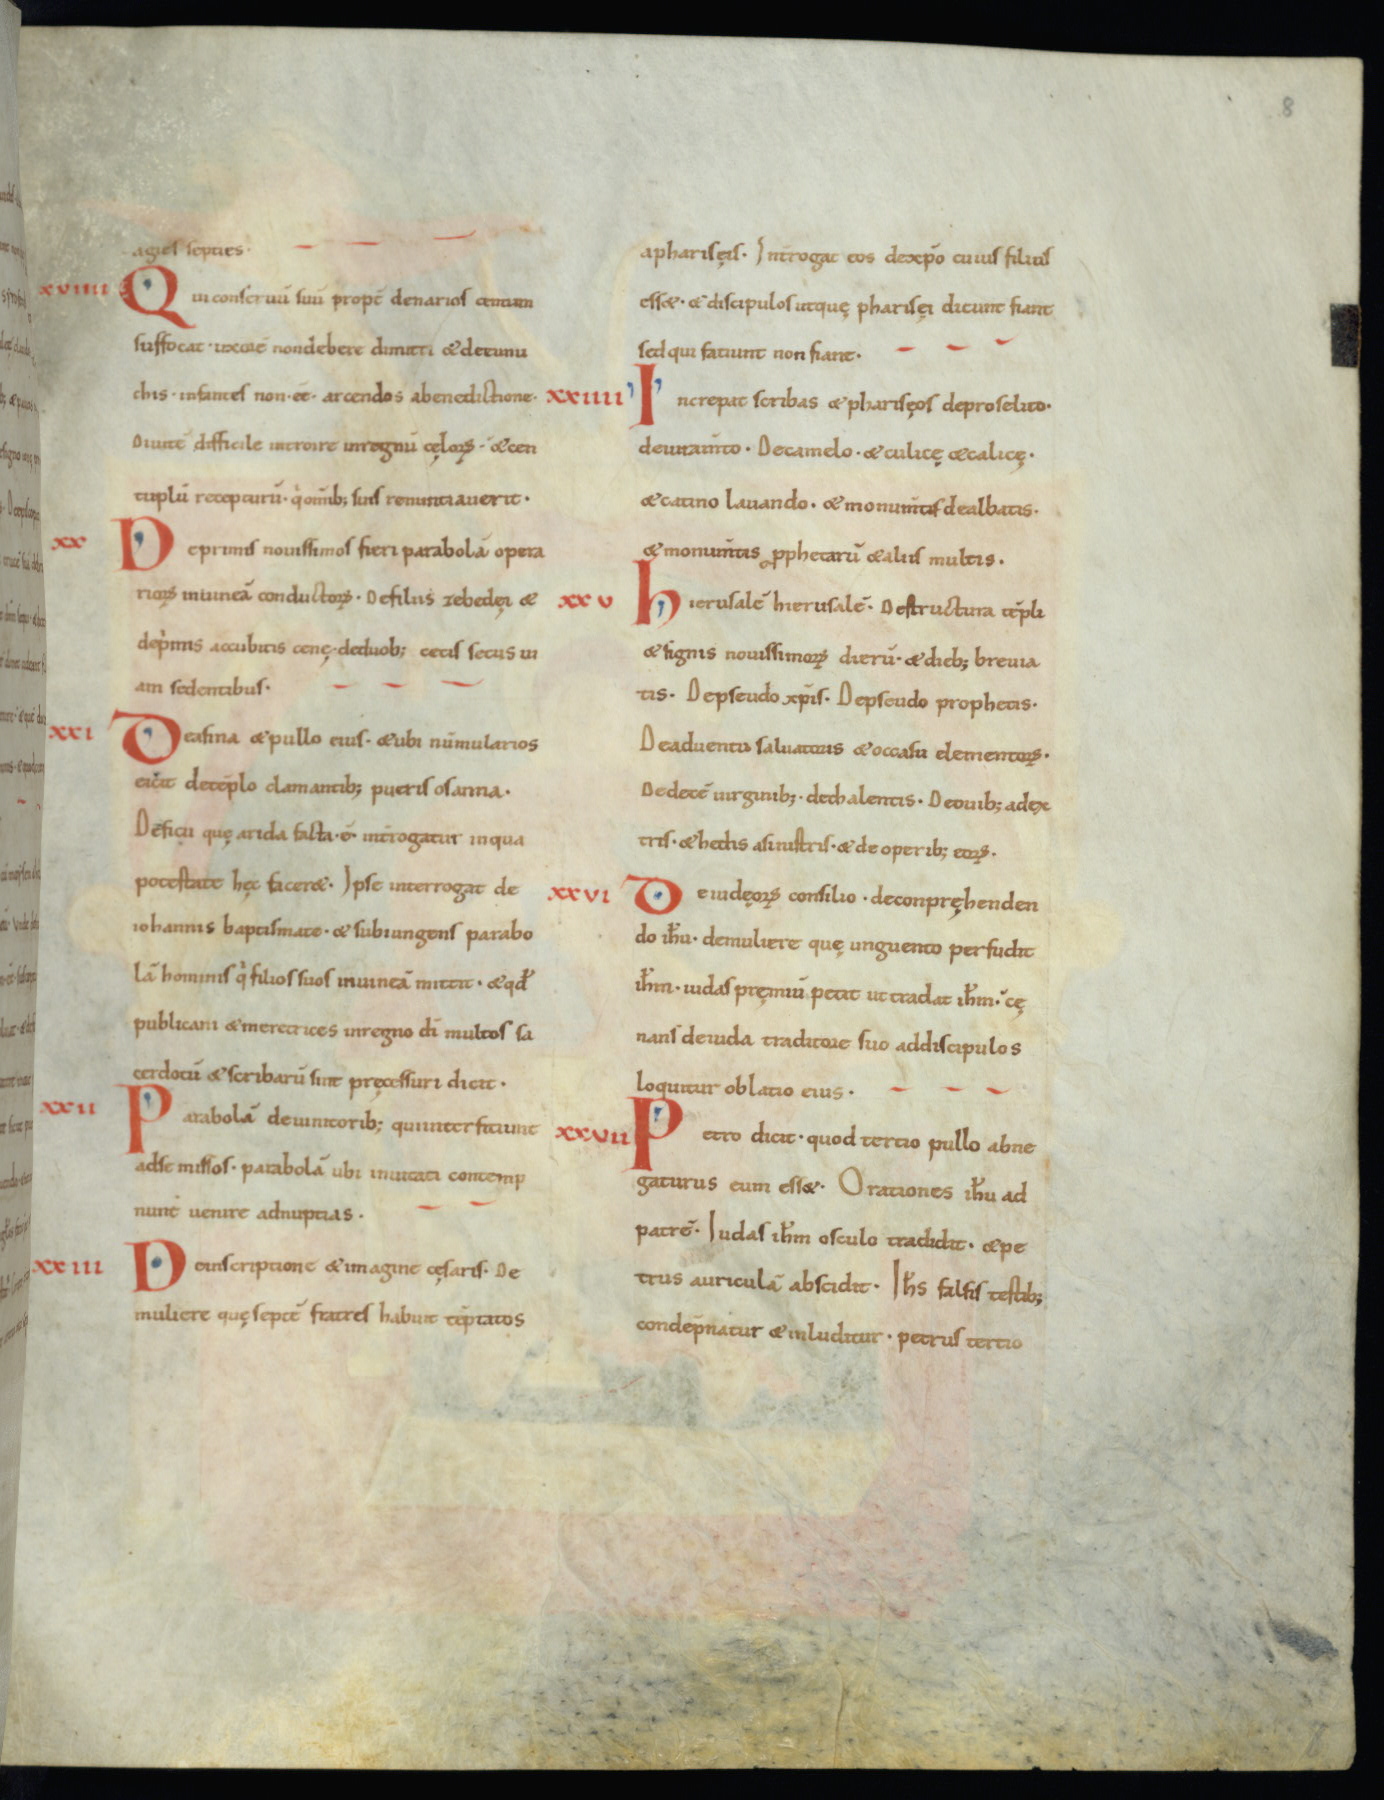 8
agies septies·
xviiii Qui conseruū suū propt̄ denarios centum
suffocat· uxorē non debere dimitti & de eunu
chis· infantes non· ēē· arcendos a benedictione·
Diuitē difficile introire in regnū cęloꝝ· & cen
tuplū recepturū· q̇ omīb; suis renuntiauerit·
xx De primis nouissimos fieri parabolā opera
rioꝝ in uineā conductoꝝ· De filiis zebedęi &
de ṗimis accubitis cenę· de duob; cecis secus ui
am sedentibus·
xxi De asina & pullo eius· & ubi nūmularios
eicit de tēplo clamantib; pueris osanna·
De ficu quę arida facta· ē· int̄rogatur in qua
potestate hęc facer&· Ipse interrogat de
iohannis baptismate· & subiungens parabo
lā hominis q̇ filios suos in uineā mittit· & qđ
publicani & meretrices in regno dī multos sa
cerdotū & scribarū sint pręcessuri dicit·
xxii Parabolā de uinitorib; qui interficiunt
ad se missos· parabolā ubi inuitati contemp
nunt uenire ad nuptias·
xxiii De inscriptione & imagine cęsaris· De
muliere quę septē fratres habuit tēptatos
a pharisęis· Int̄rogat eos de xp̄o cuius filius
ess&· & discipulos ut quę pharisęi dicunt fiant
sed qui faciunt non fiant·
xxiiii Increpat scribas & pharisęos de proselito·
de iuram̄to· De camelo· & culicę & calicę·
& catino lauando· & monum̄tis dealbatis·
& monum̄tis ꝓphetarū & aliis multis·
xxv hierusalē hierusalē· De structura tēpli
& signis nouissimoꝝ dierū· & dieb; breuia
tis· De pseudo xp̄is· De pseudo prophetis·
De aduentu saluatoris & occasu elementoꝝ·
De decē uirginib;· de thalentis· De ouib; a dex
tris· & hedis a sinistris· & de operib; eoꝝ·
xxvi De iudęoꝝ consilio· de conpręhenden
do ih̄u· de muliere quę unguento perfudit
ih̄m· iudas pręmiū petit ut tradat ih̄m· cę
nans de iuda traditore suo ad discipulos
loquitur oblatio eius·
xxvii Petro dicit· quod tertio pullo abne
gaturus eum ess&· Orationes ih̄u ad
patrē· Iudas ih̄m osculo tradidit· & pe
trus auriculā abscidit· Ih̄s falsis testib;
condēpnatur & inluditur· petrus tertio